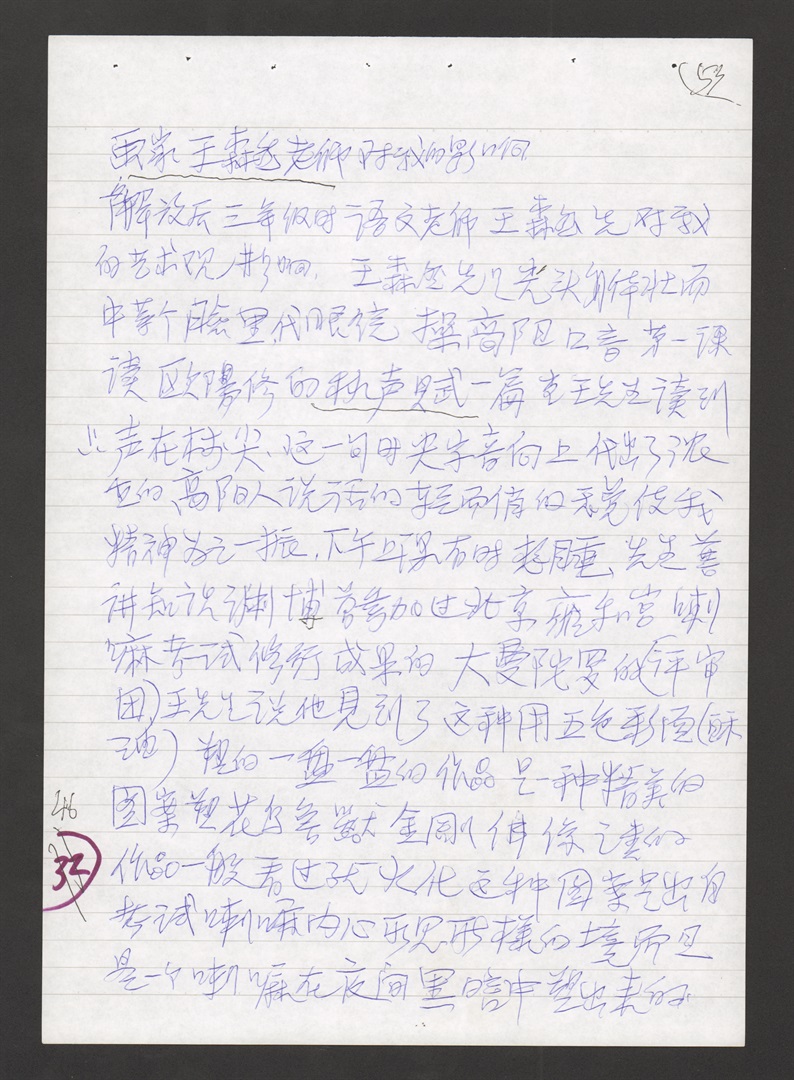 53
画家王森然老师对我的影响
解放后三年级时语文老师王森然先对我
的艺术观影响. 王森然先生光头身体壮而
中等个脸黑代眼镜 操高阳口音 第一课
读欧陽修的秋声赋一篇 王先生读到
声在树尖、这一句时尖字音向上代出了浓
重的、高阳人说话的轻而俏的 使我
精神为之一振. 下午上课有时 先生善
讲知识渊博曾参加过北京雍和宫喇
嘛考试修行成果的 大曼陀罗的(评审
团)王先生说他見到了这种用五色彩面(酥
油) 塑的一盘一盘的作品是一种精美的
图案塑花鸟兽 金剛佛像之类的
作品一般看过就火化这种图案是出自
考试喇嘛内心 形様的境而且
是一个喇嘛在夜间黑暗中塑出来的
46
32